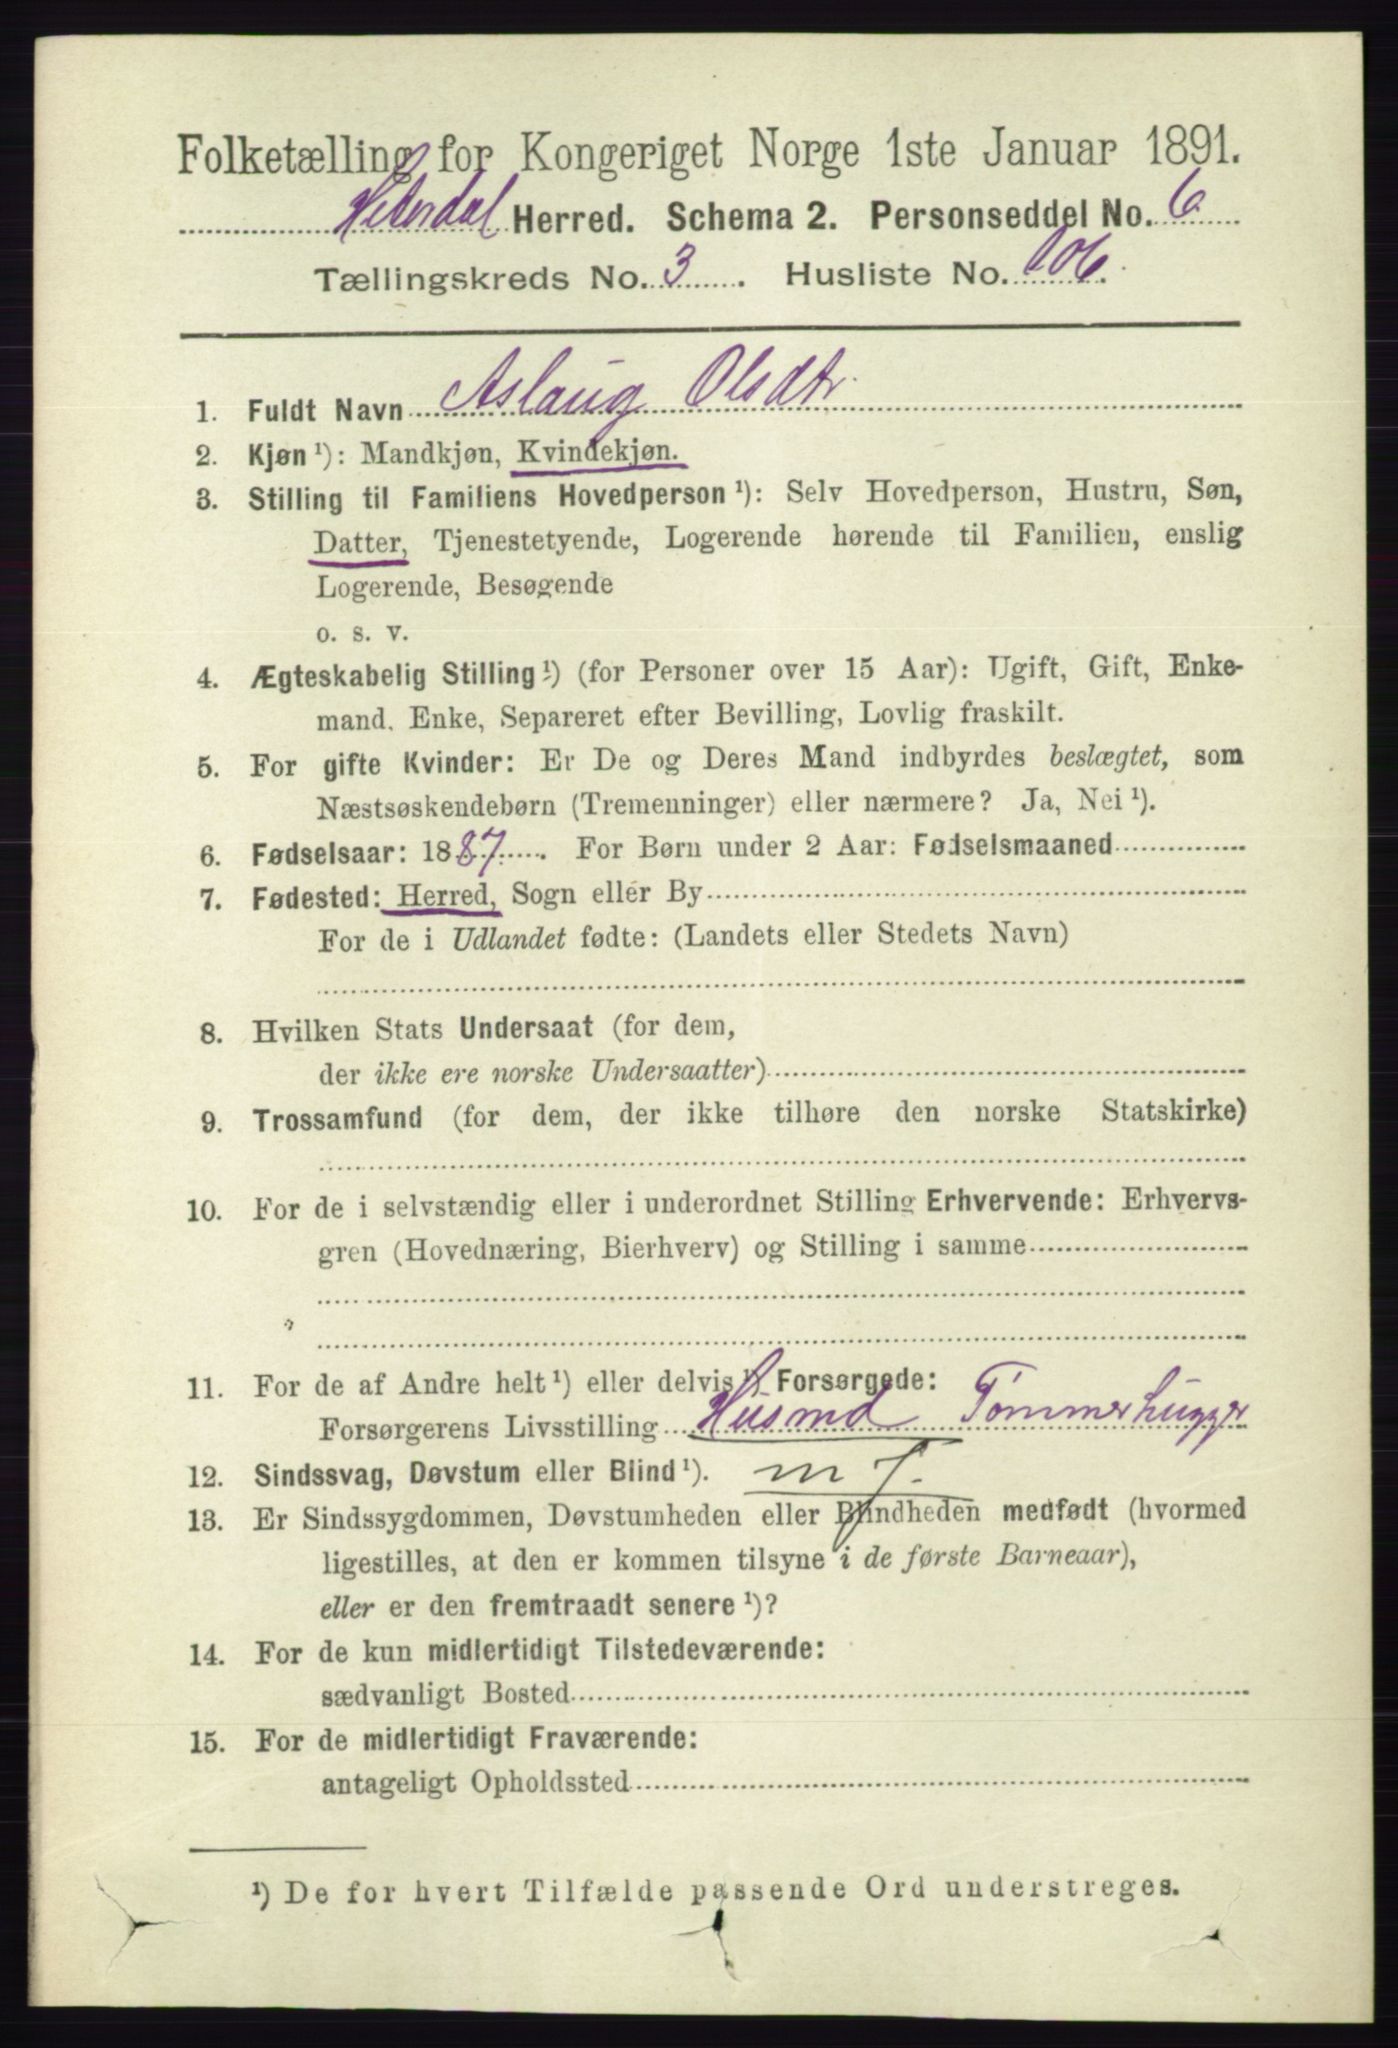 Folketælling for Kongeriget Norge 1ste Januar 1891.
Hiterdal Herred. Schema 2. Personseddel No. 6
Tællingskreds No. 3. Husliste No. 106.
1. Fuldt Navn Aslaug Olsdtr.
2. Kjøn ¹): Mandkjøn, Kvindekjøn.
3. Stilling til Familiens Hovedperson ¹): Selv Hovedperson, Hustru, Søn,
Datter, Tjenestetyende, Logerende hørende til Familien, enslig
Logerende, Besøgende
o. s. v.
4. Ægteskabelig Stilling ¹) (for Personer over 15 Aar): Ugift, Gift, Enke-
mand, Enke, Separeret efter Bevilling, Lovlig fraskilt.
5. For gifte Kvinder: Er De og Deres Mand indbyrdes beslægtet, som
Næstsøskendebørn (Tremenninger) eller nærmere? Ja, Nei ¹).
6. Fødselsaar: 1887. For Børn under 2 Aar: Fødselsmaaned
7. Fødested: Herred, Sogn eller By
For de i Udlandet fødte: (Landets eller Stedets Navn)
8. Hvilken Stats Undersaat (for dem,
der ikke ere norske Undersaatter)
9. Trossamfund (for dem, der ikke tilhøre den norske Statskirke)
10. For de i selvstændig eller i underordnet Stilling Erhvervende: Erhvervs-
gren (Hovednæring, Bierhverv) og Stilling i samme
11. For de af Andre helt ¹) eller delvis ¹) Forsørgede:
Forsørgerens Livsstilling Husmd Tømmerhugger
12. Sindssvag, Døvstum eller Blind ¹). m J.
13. Er Sindssygdommen, Døvstumheden eller Blindheden medfødt (hvormed
ligestilles, at den er kommen tilsyne i de første Barneaar),
eller er den fremtraadt senere ¹)?
14. For de kun midlertidigt Tilstedeværende:
sædvanligt Bosted
15. For de midlertidigt Fraværende:
antageligt Opholdssted
¹) De for hvert Tilfælde passende Ord understreges.